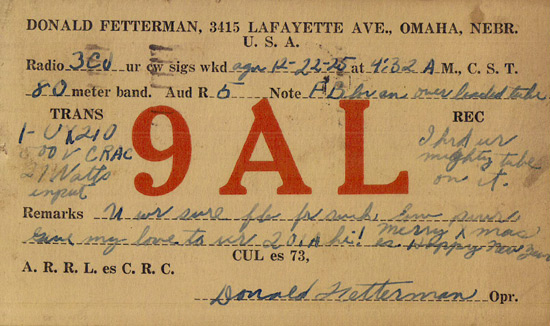 DONALD FETTERMAN, 3415 LAFAYETTE AVE., OMAHA, NEBR.
U. S. A.
Radio 3CO ur cw sigs wkd agn 12-22-25 at 9:32 A M., C. S. T.
80 meter band. Aud R 5 Note F.B. for an over loaded tube
TRANS
1- UX210
500 V CRAC
27 Watts
input
9AL
REC
I hrd ur
mighty tube
on it.
Remarks U wr sure fb fr such. Em sure
Give my love to ur 201A hi! Merry Xmas
es Happy New Year
CUL es 73,
A. R. R. L. es C. R. C.
Donald Fetterman Opr.